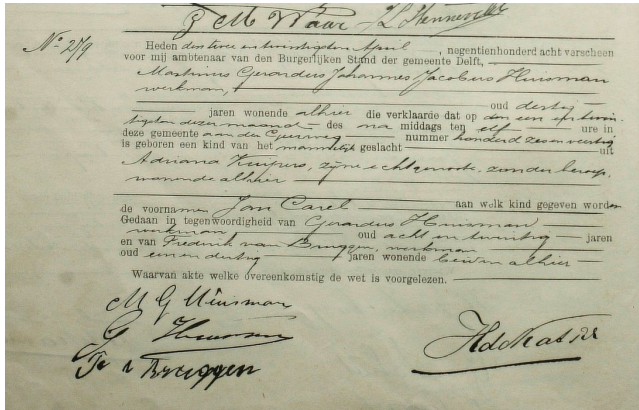 N° 279
Heden den twee en twintigsten April, negentienhonderd acht verscheen
voor mij ambtenaar van den Burgerlijken Stand der gemeente Delft,
Martinus Gerardus Johannes Jacobus Huisman
werkman,
oud dertig
jaren wonende alhier die verklaarde dat op den een en twin-
tigsten dezer maand des na middags ten elf ure in
deze gemeente aan den nummer honderd zeven en veertig
is geboren een kind van het mannelijk geslacht uit
Adriana Kuipers, zijne echtgenoote, zonder beroep,
wonende alhier
aan welk kind gegeven worden
de voornamen Jan Carel
Gedaan in tegenwoordigheid van Gerardus Huisman
werkman oud acht en twintig jaren
en van Frederik van Bruggen, werkman
oud een en dertig jaren wonende beiden alhier
Waarvan akte welke overeenkomstig de wet is voorgelezen.
M G Huisman
G Huisman
Bruggen